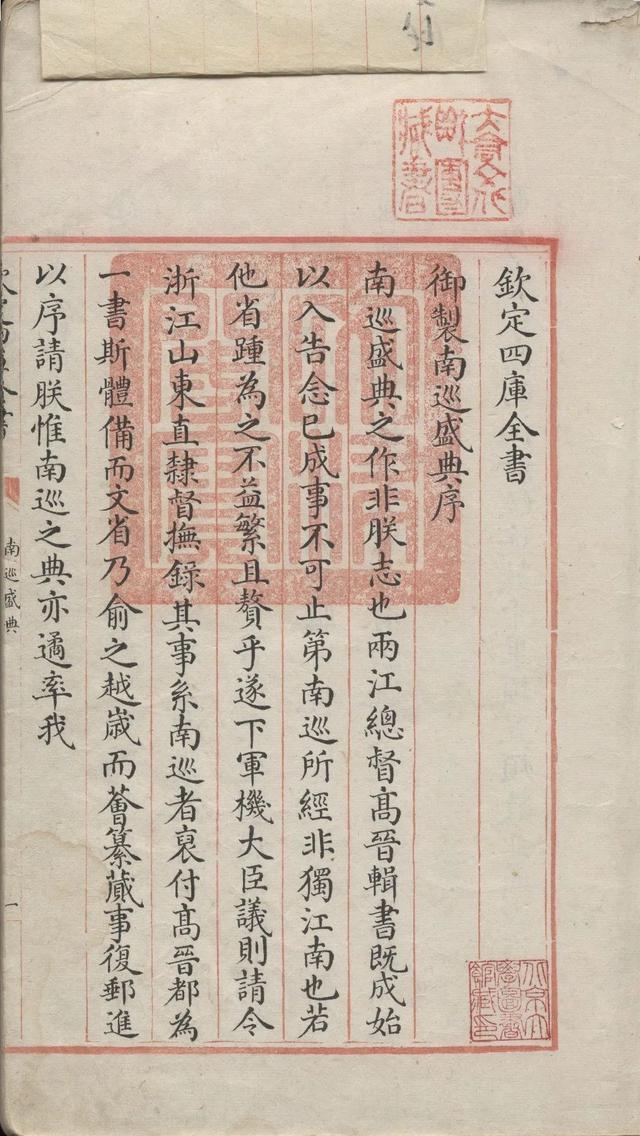 欽定四庫全書
御製南巡盛典序
南巡盛典之作非朕志也兩江總督高晉輯書既成始
以入告念已成事不可止第南巡所經非獨江南也若
他省踵為之不益繁且贅乎遂下軍機大臣議則請令
浙江山東直隸督撫錄其事系南巡者裒付高晉都為
一書斯體備而文省乃俞之越歲而薈纂蕆事復郵進
以序請朕惟南巡之典亦遹率我
南巡盛典
一